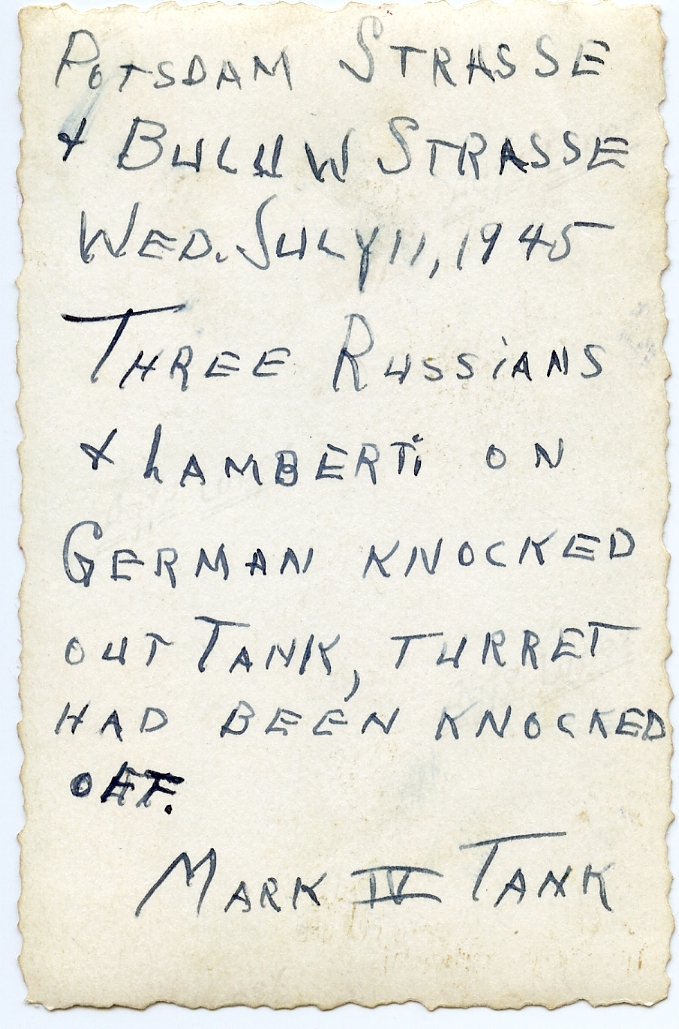 POTSDAM STRASSE
& BULUW STRASSE
WED. JULY 11, 1945
THREE RUSSIANS
& LAMBERTi ON
GERMAN KNOCKED
OUT TANK, TURRET
HAD BEEN KNOCKED
OFF.
MARK IV TANK